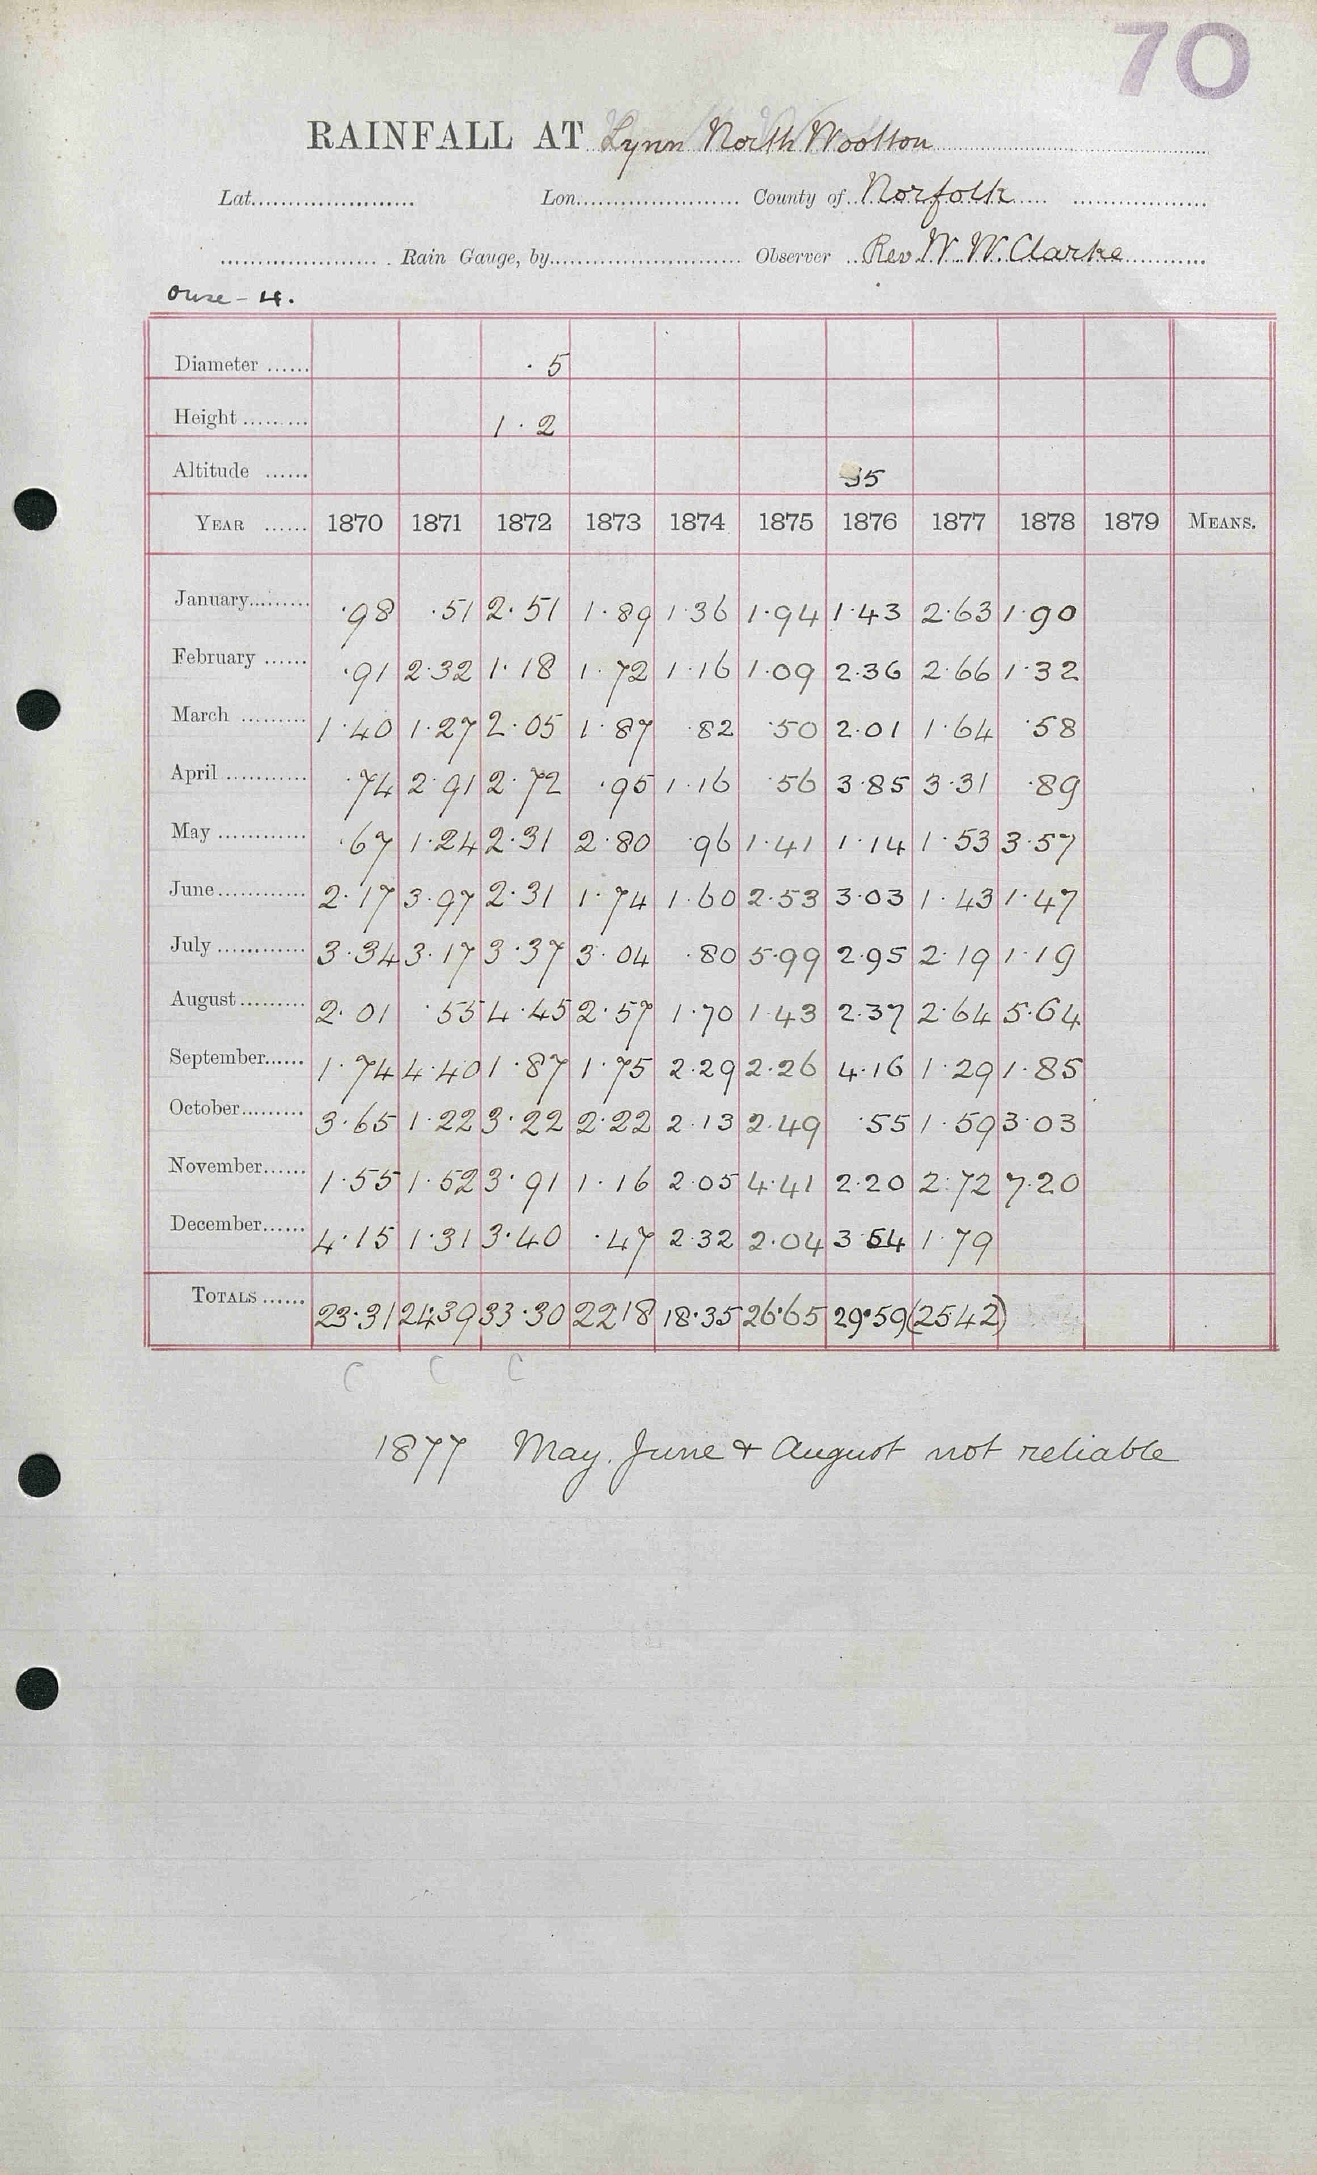 70
RAINFALL AT Lynn North Wootton
Lat. Lon. County of Norfolk
Rain Gauge, by Observer Rev. W. W. Clarke
Ouse - 4.
Diameter ...... · 5
Height ......... 1 · 2
Altitude ...... 35
YEAR ...... 1870 1871 1872 1873 1874 1875 1876 1877 1878 1879 MEANS.
January......... ·98 ·51 2·51 1·89 1·36 1·94 1·43 2·63 1·90
February ...... ·91 2·32 1·18 1·72 1·16 1·09 2·36 2·66 1·32
March ......... 1·40 1·27 2·05 1·87 ·82 ·50 2·01 1·64 ·58
April ............ ·74 2·91 2·72 ·95 1·16 ·56 3·85 3·31 ·89
May ............ ·67 1·24 2·31 2·80 ·96 1·41 1·14 1·53 3·57
June............ 2·17 3·97 2·31 1·74 1·60 2·53 3·03 1·43 1·47
July ............ 3·34 3·17 3·37 3·04 ·80 5·99 2·95 2·19 1·19
August......... 2·01 ·55 4·45 2·57 1·70 1·43 2·37 2·64 5·64
September...... 1·74 4·40 1·87 1·75 2·29 2·26 4·16 1·29 1·85
October......... 3·65 1·22 3·22 2·22 2·13 2·49 ·55 1·59 3·03
November...... 1·55 1·52 3·91 1·16 2·05 4·41 2·20 2·72 7·20
December...... 4·15 1·31 3·40 ·47 2·32 2·04 3·54 1·79
TOTALS ...... 23·31 24·39 33·30 22·18 18·35 26·65 29·59 (25·42)
C C C
1877 May, June & August not reliable